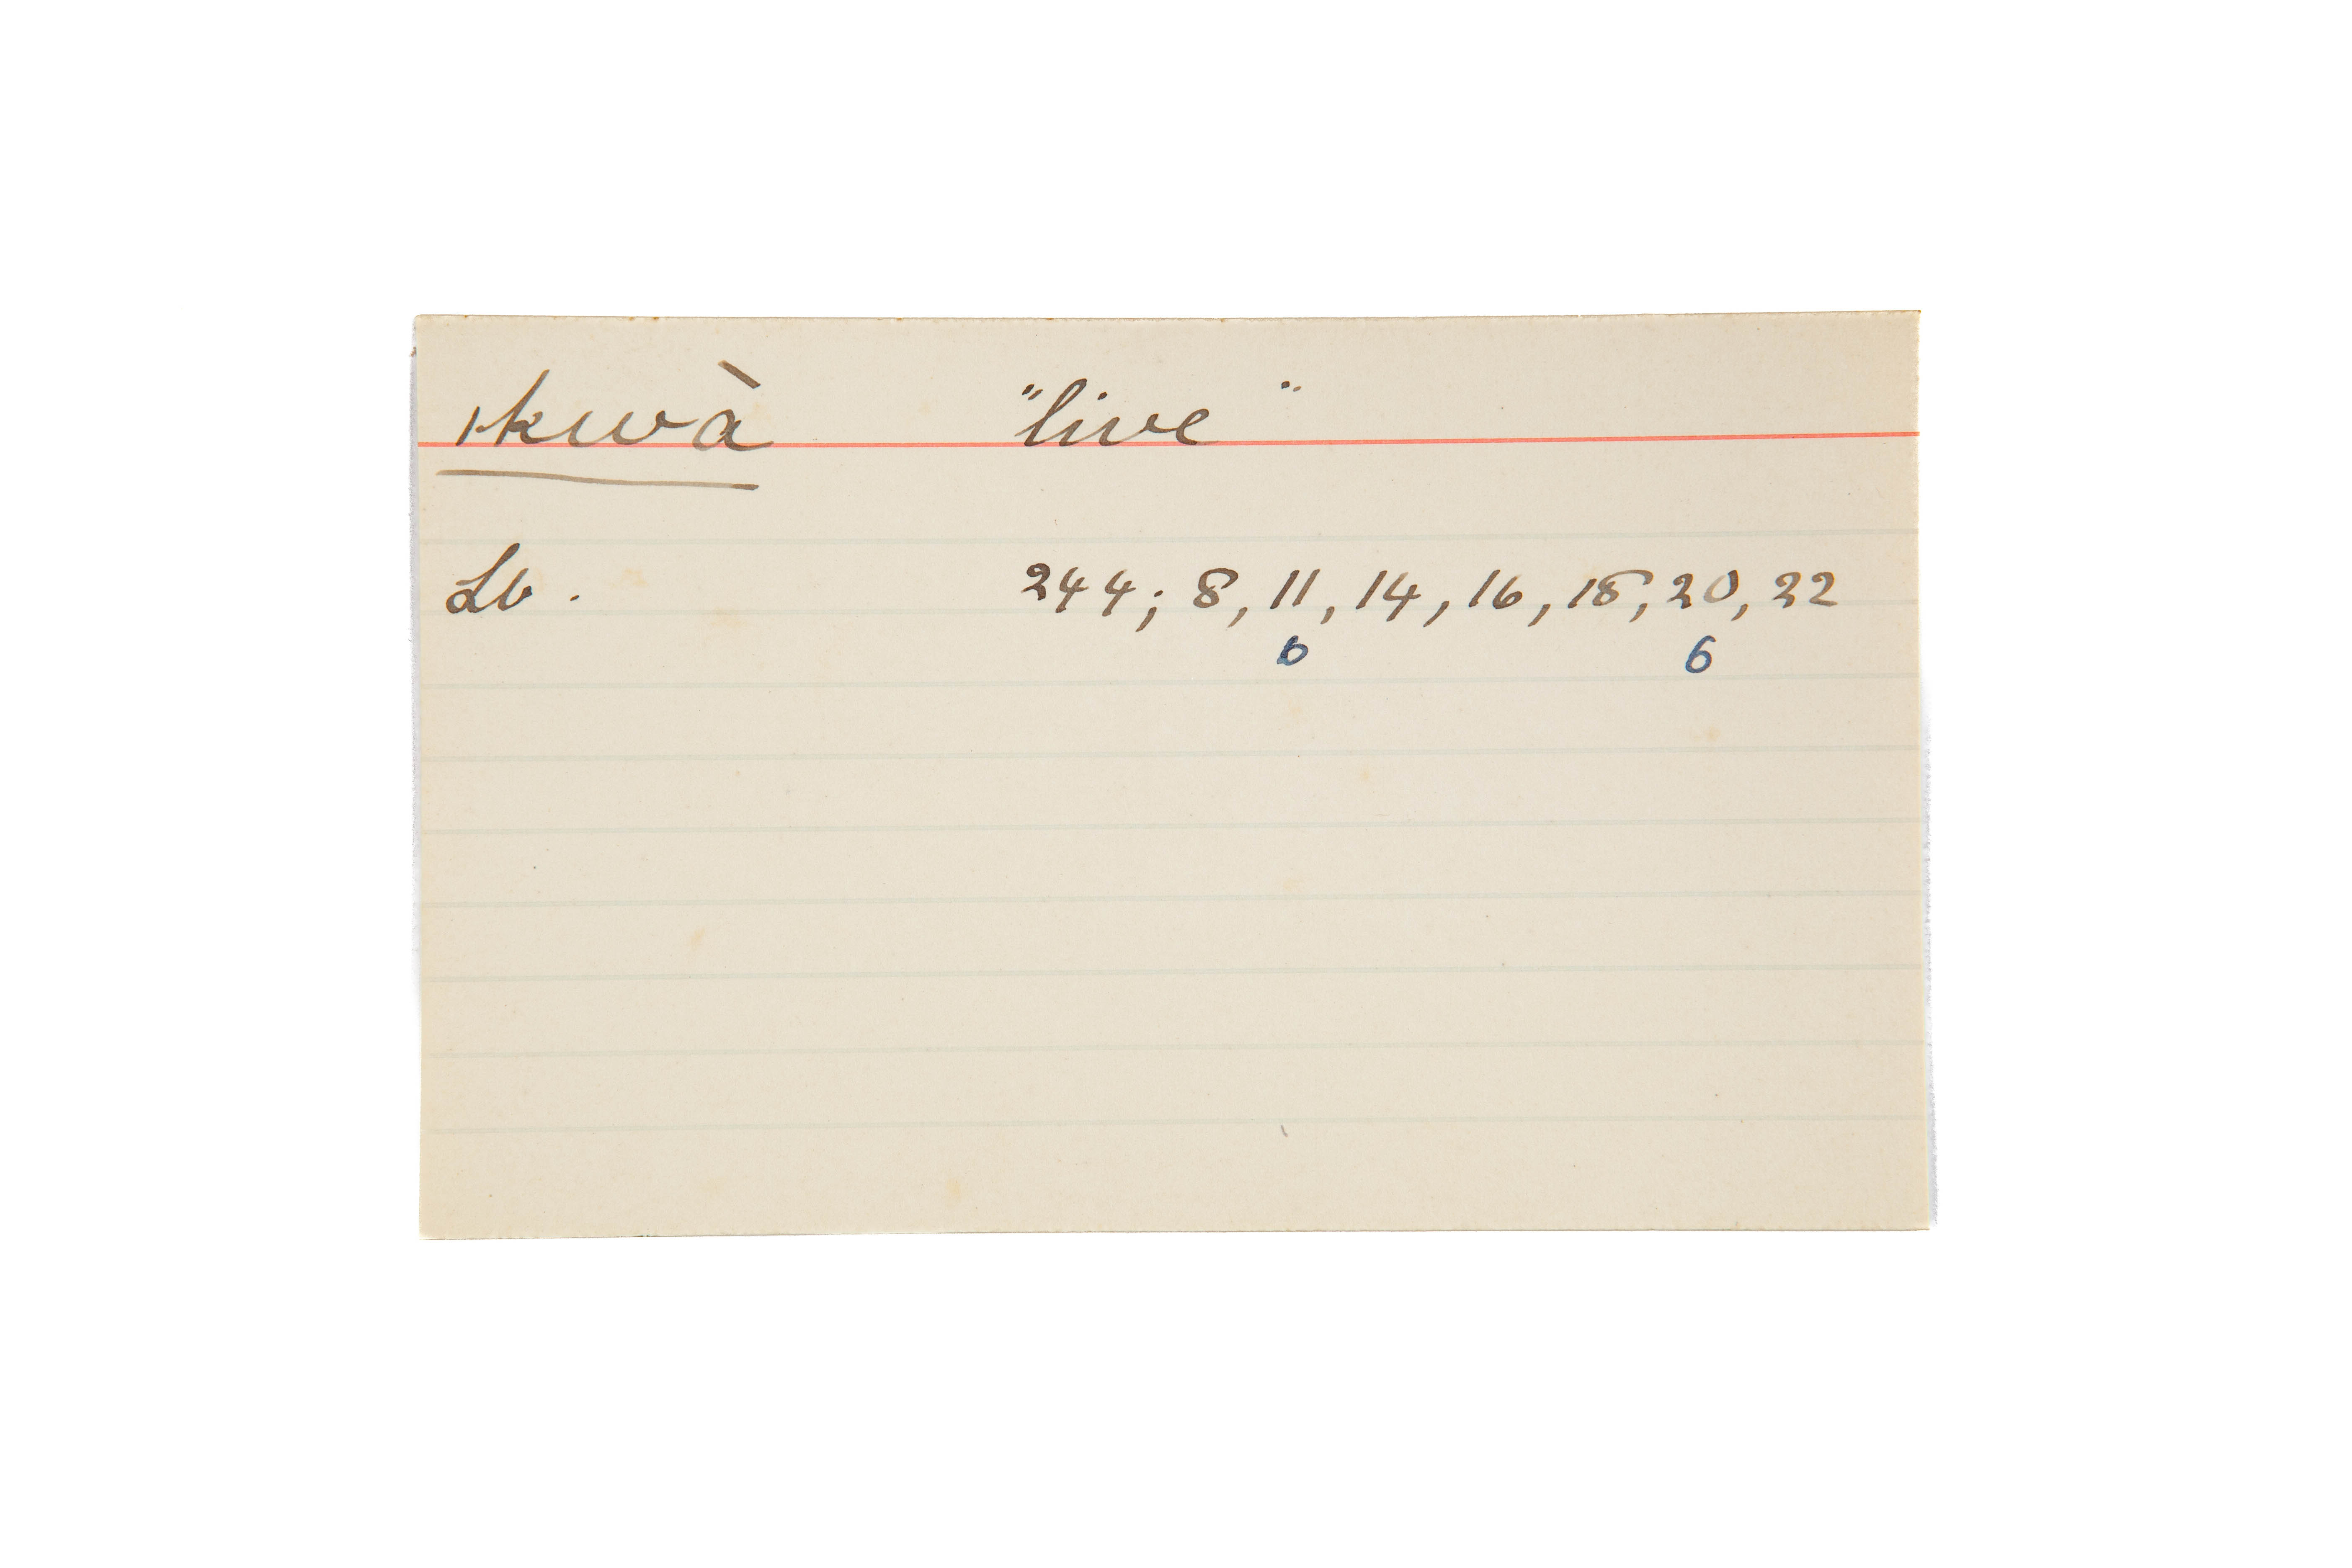 ıkwà "live"
Lb. 244; 8, 11, 14, 16, 18, 20, 22
6 6